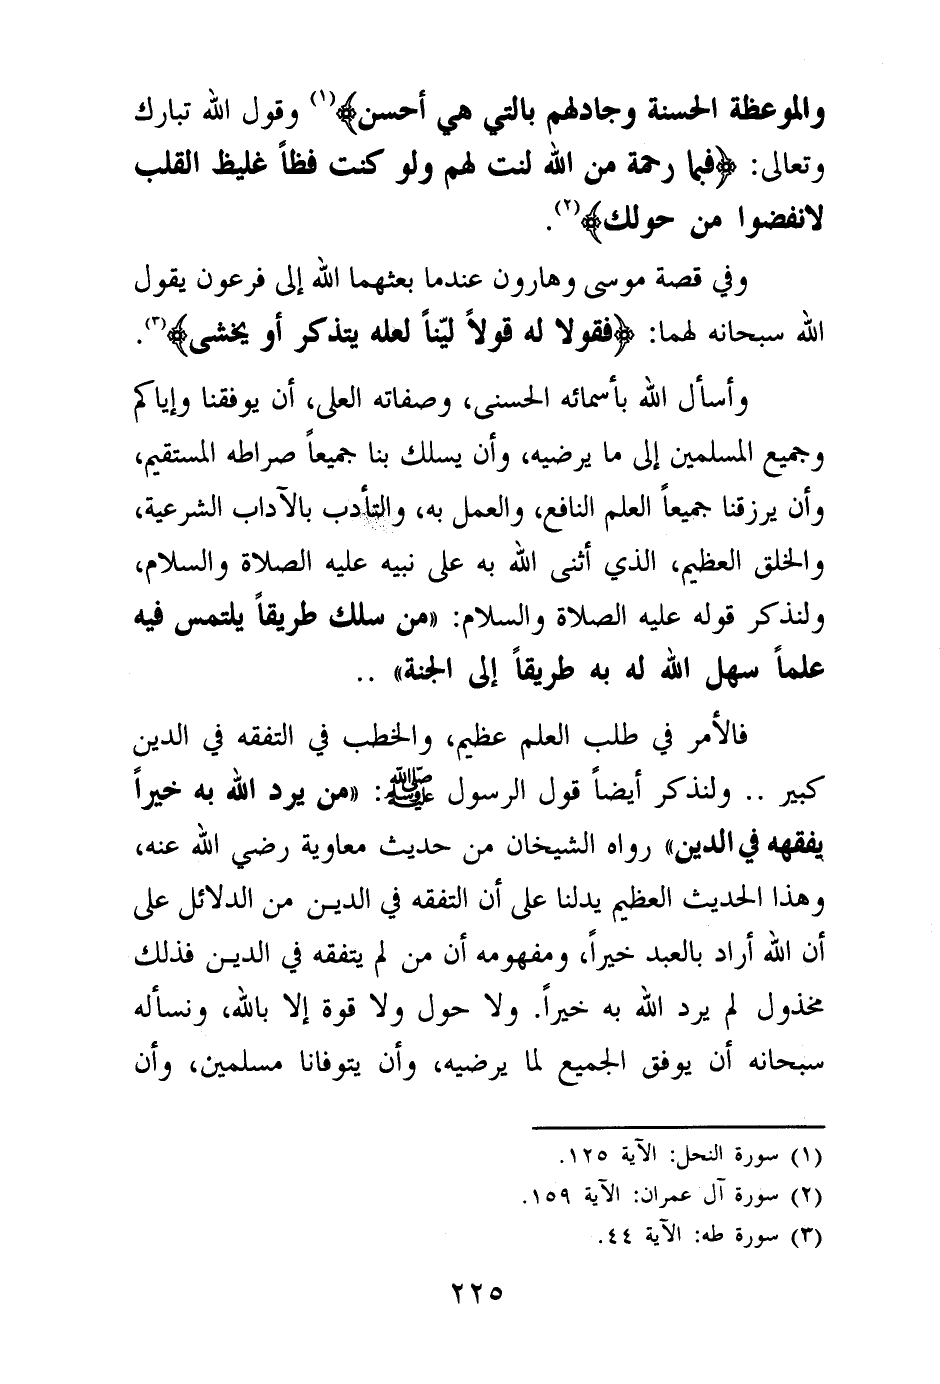 والموعظة الحسنة وجادلهم بالتي هي أحسن﴾(١) وقول الله تبارك
وتعالى: ﴿فبما رحمة من الله لنت لهم ولو كنت فظاً غليظ القلب
لانفضوا من حولك﴾(٢).
وفي قصة موسى وهارون عندما بعثهما الله إلى فرعون يقول
الله سبحانه لهما: ﴿فقولا له قولاً ليّناً لعله يتذكر أو يخشى﴾(٣).
وأسأل الله بأسمائه الحسنى، وصفاته العلى، أن يوفقنا وإياكم
وجميع المسلمين إلى ما يرضيه، وأن يسلك بنا جميعاً صراطه المستقيم،
وأن يرزقنا جميعاً العلم النافع، والعمل به، والتأدب بالآداب الشرعية،
والخلق العظيم، الذي أثنى الله به على نبيه عليه الصلاة والسلام،
ولنذكر قوله عليه الصلاة والسلام: «من سلك طريقاً يلتمس فيه
علماً سهل الله له به طريقاً إلى الجنة» ..
فالأمر في طلب العلم عظيم، والخطب في التفقه في الدين
كبير .. ولنذكر أيضاً قول الرسول ﷺ: «من يرد الله به خيراً
يفقهه في الدين» رواه الشيخان من حديث معاوية رضي الله عنه،
وهذا الحديث العظيم يدلنا على أن التفقه في الديـن من الدلائل على
أن الله أراد بالعبد خيراً، ومفهومه أن من لم يتفقه في الديـن فذلك
مخذول لم يرد الله به خيراً. ولا حول ولا قوة إلا بالله، ونسأله
سبحانه أن يوفق الجميع لما يرضيه، وأن يتوفانا مسلمين، وأن
(١) سورة النحل: الآية ١٢٥.
(٢) سورة آل عمران: الآية ١٥٩.
(٣) سورة طه: الآية ٤٤.
٢٢٥